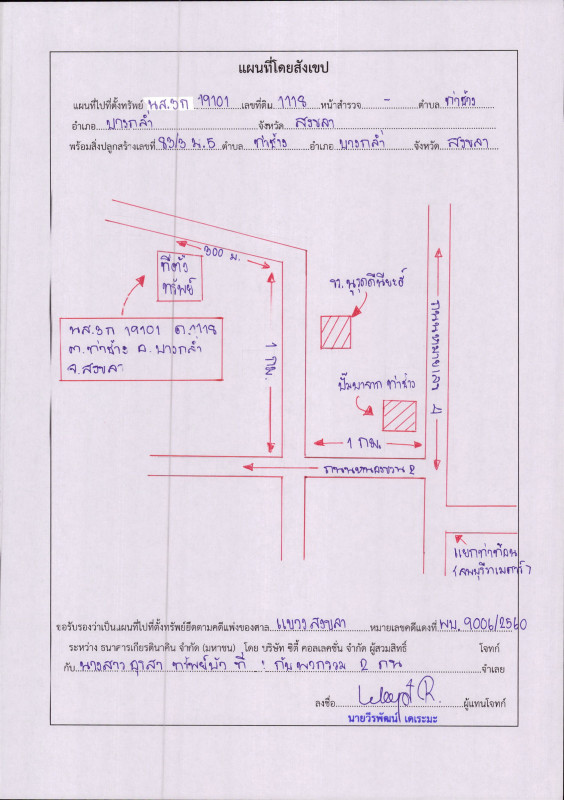 แผนที่โดยสังเขป
แผนที่ไปที่ตั้งทรัพย์ นส.3ก 19101 เลขที่ดิน 1118 หน้าสำรวจ - ตำบล ท่าช้าง
อำเภอ บางกล่ำ จังหวัด สงขลา
พร้อมสิ่งปลูกสร้างเลขที่ 83/3 ม.5 ตำบล ท่าช้าง อำเภอ บางกล่ำ จังหวัด สงขลา
300 ม.
ที่ตั้ง
ทรัพย์
นส.3ก 19101 ด.1118
ต.ท่าช้าง อ.บางกล่ำ
จ.สงขลา
1 กม.
ปั๊มบางจาก ท่าช้าง
1 กม.
2
แยกท่าท้อน
ขอรับรองว่าเป็นแผนที่ไปที่ตั้งทรัพย์ยึดตามคดีแพ่งของศาล แขวงสงขลา หมายเลขคดีแดงที่ ผบ.9006/2560
ระหว่าง ธนาคารเกียรตินาคิน จำกัด (มหาชน) โดย บริษัท ซิตี้ คอลเลคชั่น จำกัด ผู้สวมสิทธิ์ โจทก์
กับ นางสาว ที่ 1 กับพวกรวม 2 คน จำเลย
ลงชื่อ ผู้แทนโจทก์
นายวีรพัฒน์ เดเระมะ